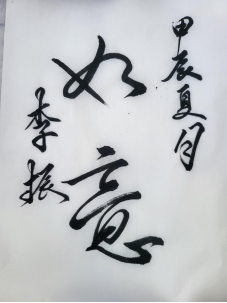 甲辰夏月
如意
李振